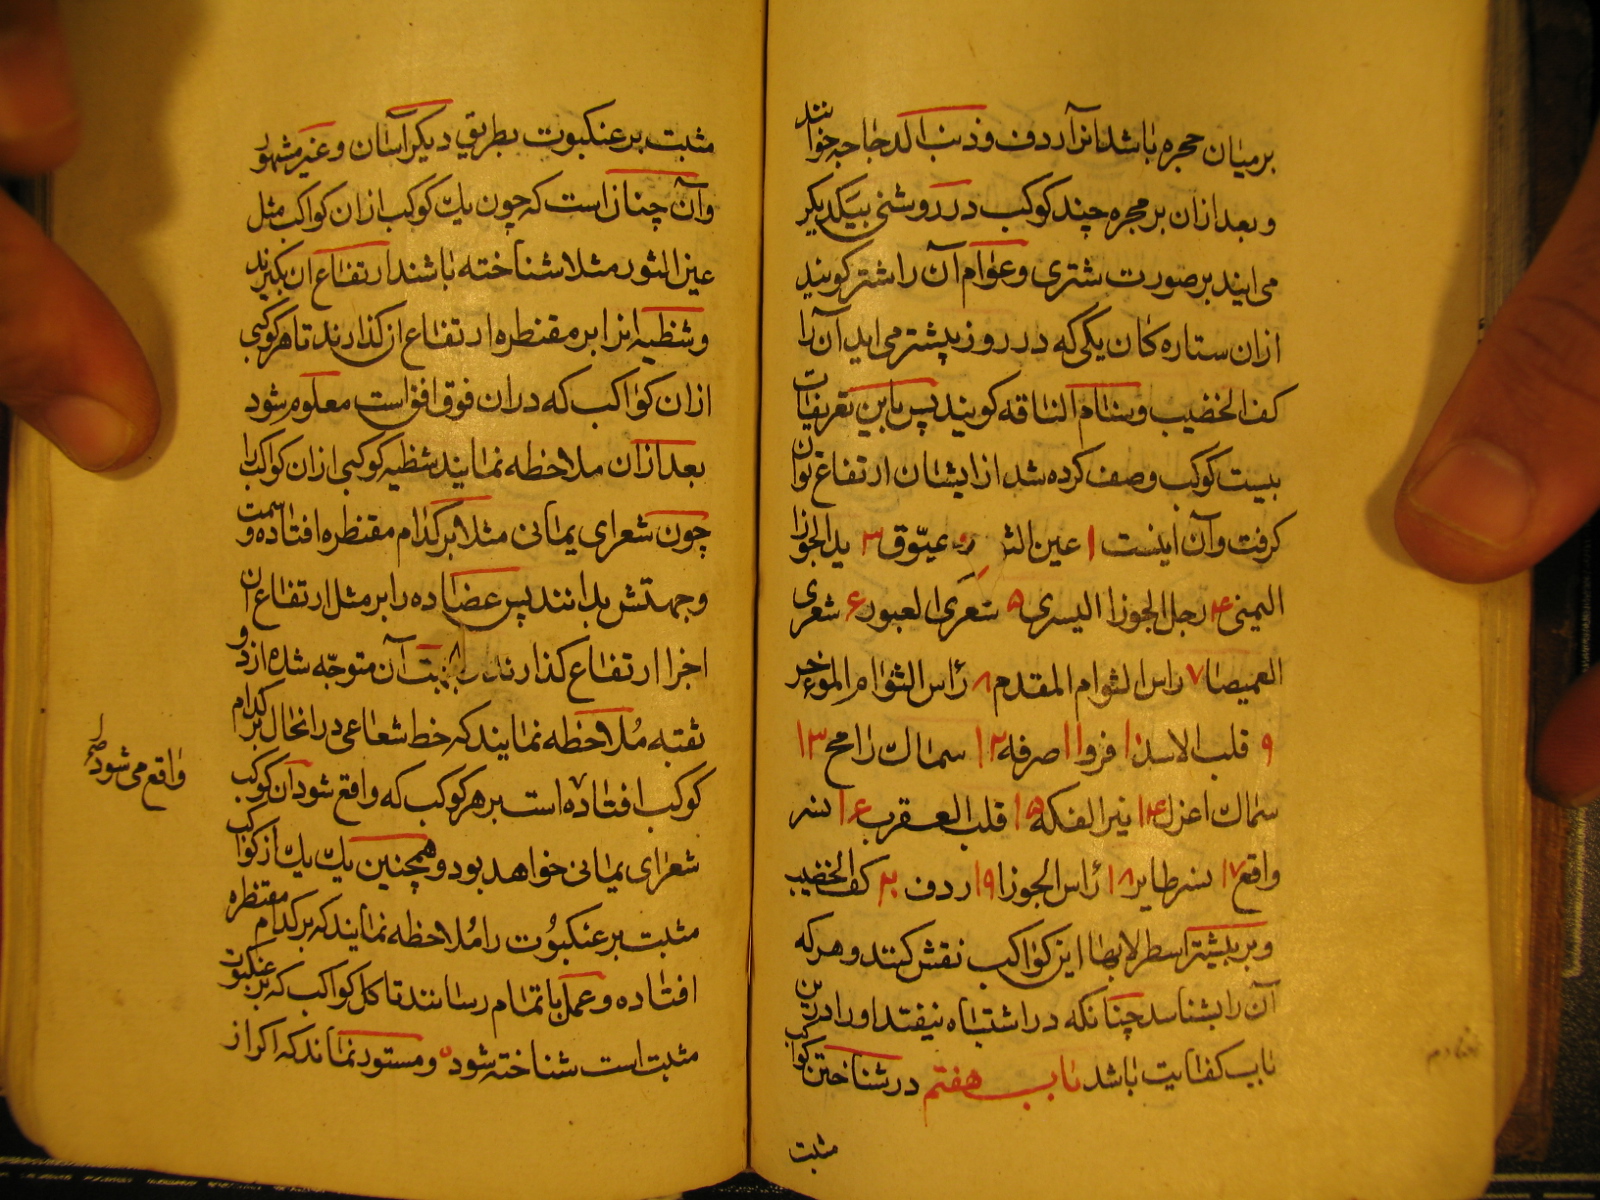 بر میان مجره باشد انرا ردف و ذنب الدجاجه خوانند
و بعد ازان بر مجره چند کوکب در روشنی بیکدیکر
می ایند بر صورت شتری و عوام آن را شتر کویند
ازان ستاره کان یکی که در روز پیشتر می اید آن را
کف الخضیب و سنام الناقه کویند پس باین تعریفات
بیست کوکب وصف کرده شد از ایشان ارتفاع توان
کرفت و آن اینست ۱ عین الثور عیّوق ۳ ید الجوزا
الیمنی ۴ رجل الجوزا الیسری ۵ شعری العبور ۶ شعری
الغمیصا ۷ راس التوام المقدم ۸ رأس التوام الموءخر
۹ قلب الاسد ۱۰ فرد ۱۱ صرفه ۱۲ سماک رامح ۱۳
سماک اعزل ۱۴ نیر الفکه ۱۵ قلب العقرب ۱۶ نسر
واقع ۱۷ نسر طایر ۱۸ رأس الجوزا ۱۹ ردف ۲۰ کف الخضیب
و بر بیشتر اسطرلابها این کواکب نقش کنند و هر که
آن را بشناسد چنانکه در اشتباه نیفتد او را درین
باب کفایت باشد باب هفتم در شناختن کواکب
مثبت
مثبت بر عنکبوت بطریقی دیکر آسان و غیر مشهور
و آن چنانست که چون یک کوکب ازان کواکب مثل
عین الثور مثلا شناخته باشند ارتفاع ان بکیرند
و شظیه انرا بر مقنطره ارتفاع ان کذارند تا هر کوکبی
ازان کواکب که دران فوق افق است معلوم شود
بعد ازان ملاحظه نمایند شظیه کوکبی ازان کواکب را
چون شعرای یمانی مثلا بر کدام مقنطره افتاده و سمت
و جهتش بدانند پس عضاده را بر مثل ارتفاع ان
اجزا ارتفاع کذارند آن متوجه شده از دو
ثقبه ملاحظه نمایند که خط شعاعی درانحال بر کدام
کوکب افتاده است بر هر کوکب که واقع شود آن کوکب
شعرای یمانی خواهد بود و همچنین یک یک از کواکب
مثبت بر عنکبوت را ملاحظه نمایند که بر کدام مقنطره
افتاده و عمل باتمام رسانند تا کل کواکب که بر عنکبوت
مثبت است شناخته شود و مستور نماند که اکر از
واقع می شود